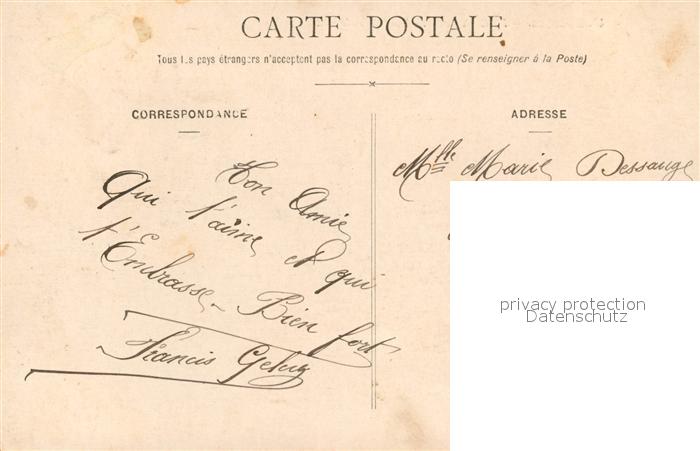 CARTE POSTALE
Tous les pays étrangers n'acceptent pas la correspondance au recto (Se renseigner à la Poste)
CORRESPONDANCE
ADRESSE
Mlle Marie Dessauge
Ton Amie
Qui t'aime et qui
t'Embrasse Bien fort
Francis
privacy protection
Datenschutz